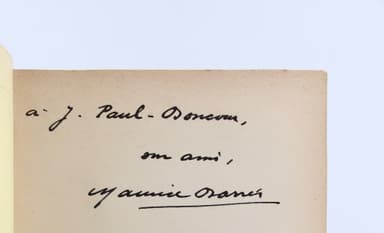 à J. Paul-Boncour,
son ami,
Maurice Barrès